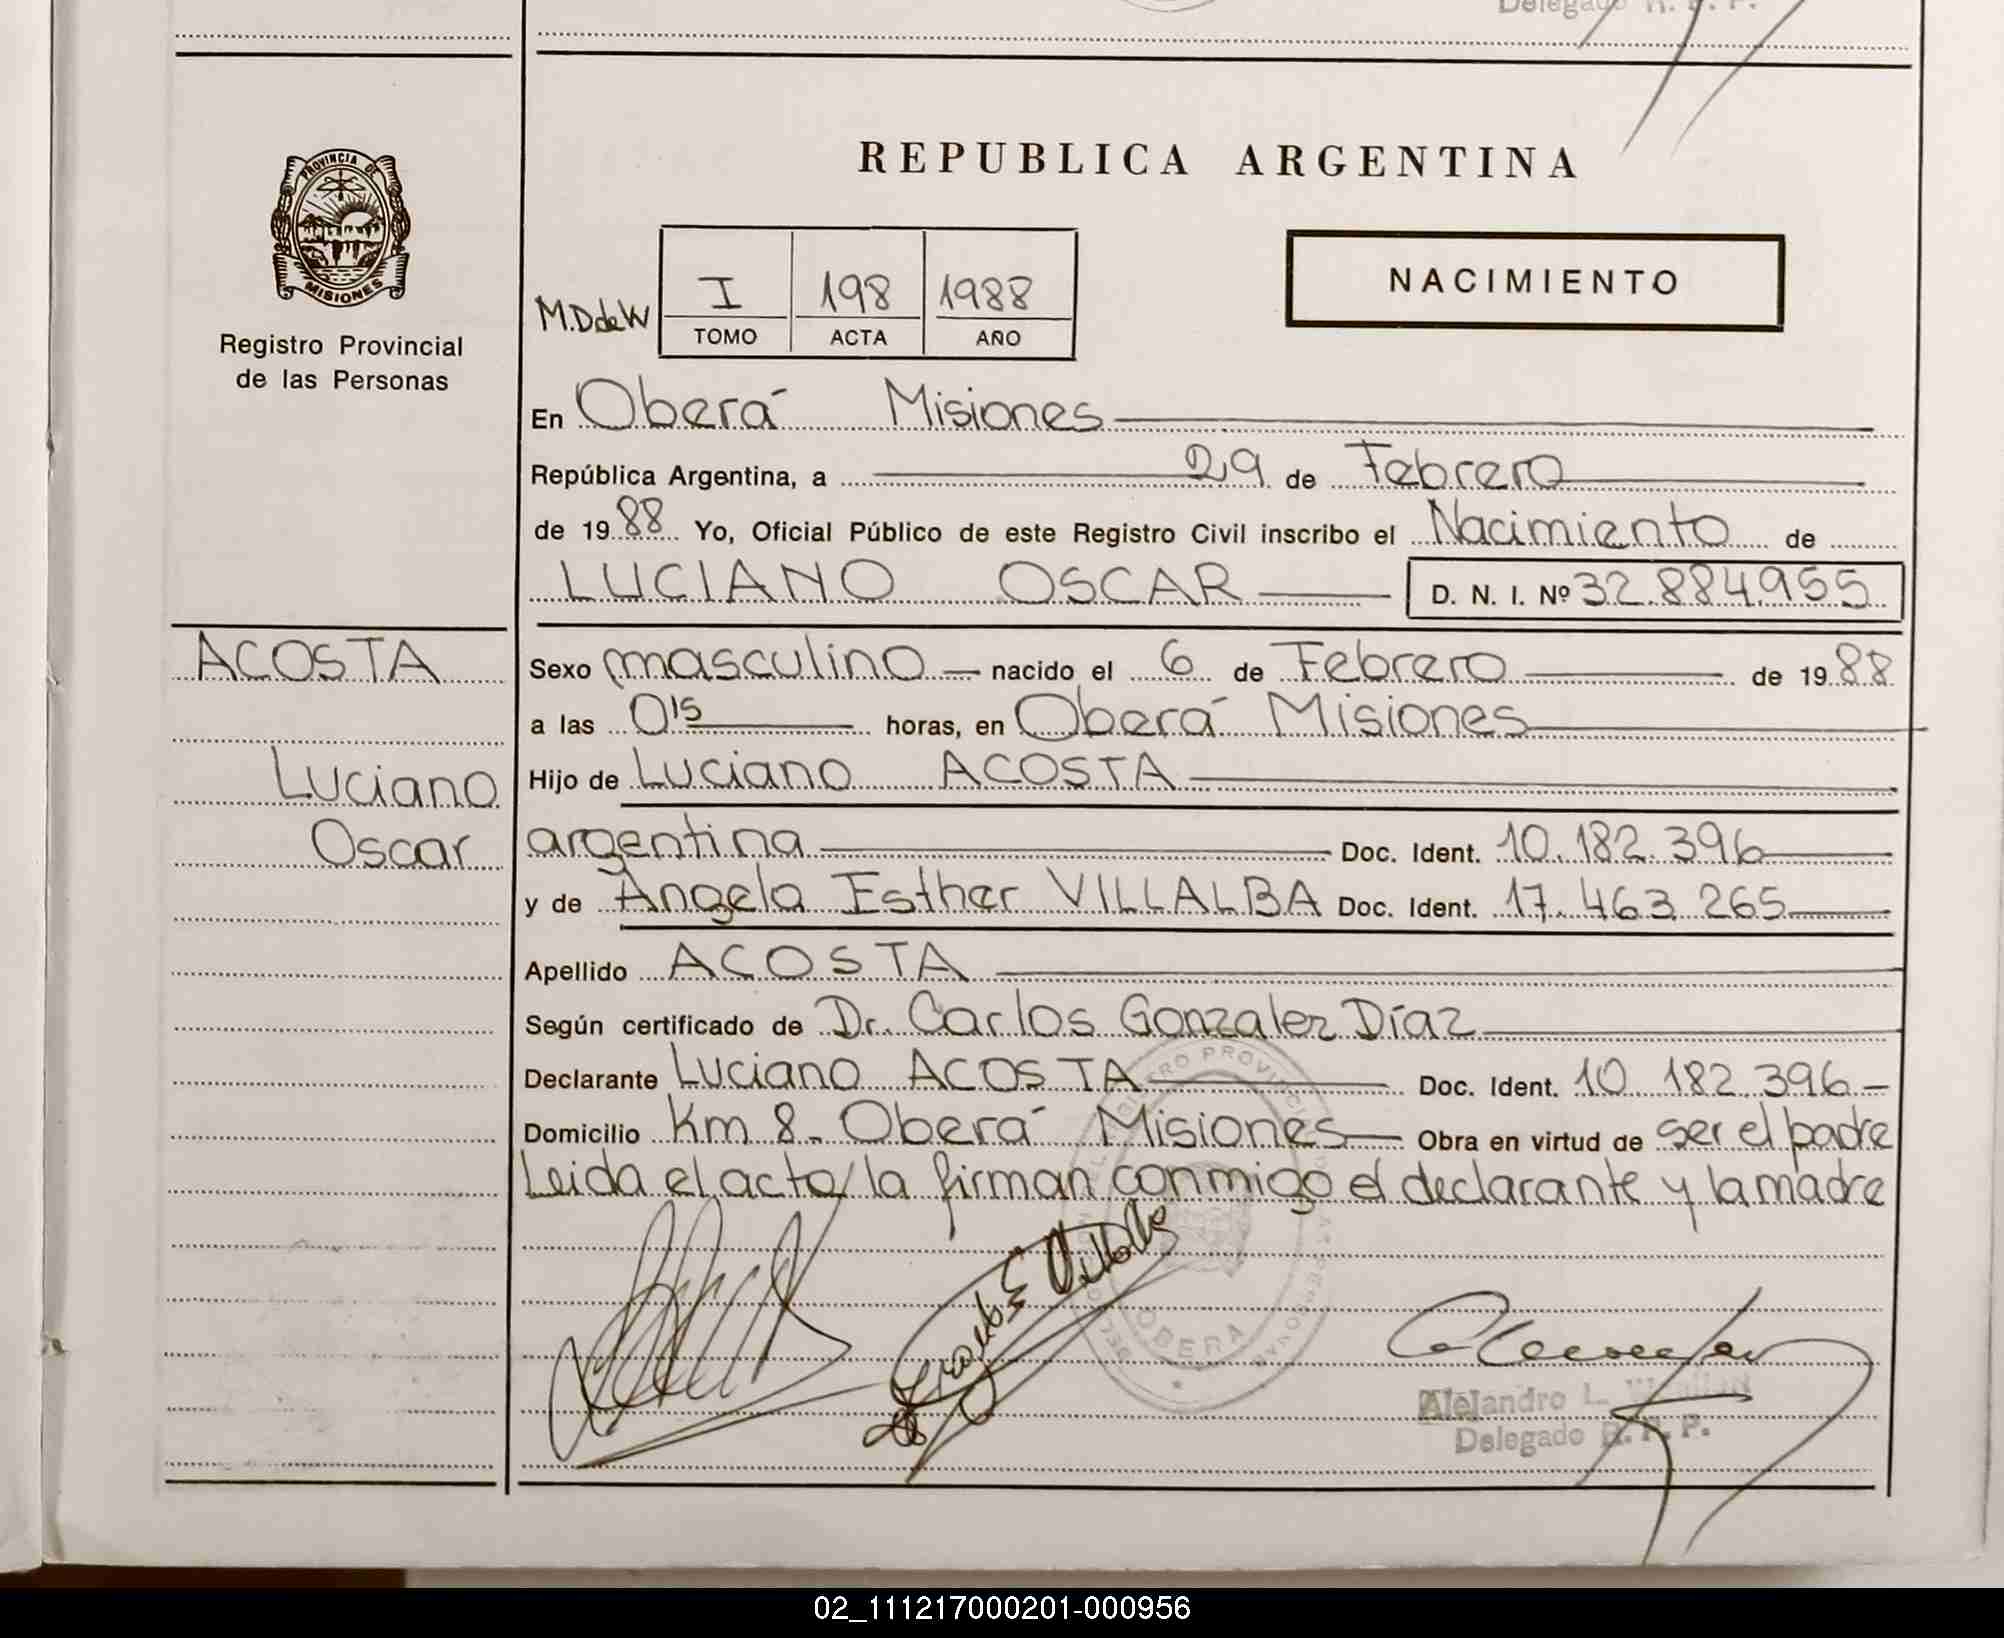 Delegado R. P. P.
REPUBLICA ARGENTINA
PROVINCIA DE
MISIONES
Registro Provincial
de las Personas
M.D de W
I 198 1988
TOMO ACTA AÑO
NACIMIENTO
En Oberá Misiones
República Argentina, a 29 de Febrero
de 1988 Yo, Oficial Público de este Registro Civil inscribo el Nacimiento de
LUCIANO OSCAR D. N. I. Nº 32.884.955
ACOSTA
Luciano
Oscar
Sexo masculino nacido el 6 de Febrero de 1988
a las 0'15 horas, en Oberá Misiones
Hijo de Luciano ACOSTA
argentina Doc. Ident. 10.182.396
y de Angela Esther VILLALBA Doc. Ident. 17.463.265
Apellido ACOSTA
Según certificado de Dr. Carlos Gonzalez Díaz
Declarante Luciano ACOSTA Doc. Ident. 10.182.396
Domicilio Km 8 - Oberá Misiones Obra en virtud de ser el padre
Leida el acta, la firman conmigo el declarante y la madre
OBERA
Alejandro L.
Delegado R. P. P.
02_111217000201-000956